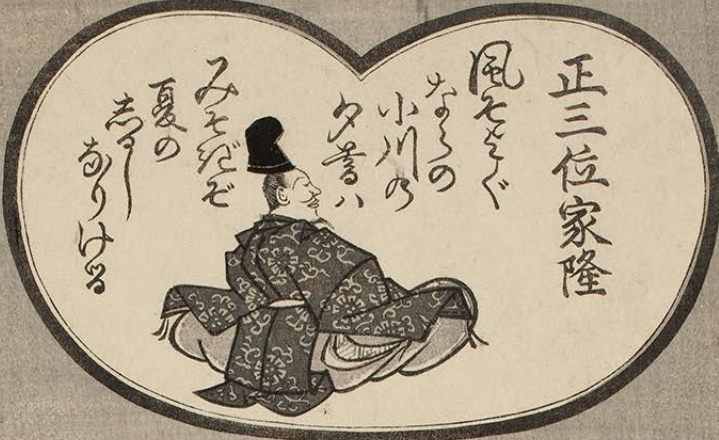 正三位家隆
風そよぐ
ならの
小川の
夕暮ハ
みそぎぞ
夏の
志るし
なりける